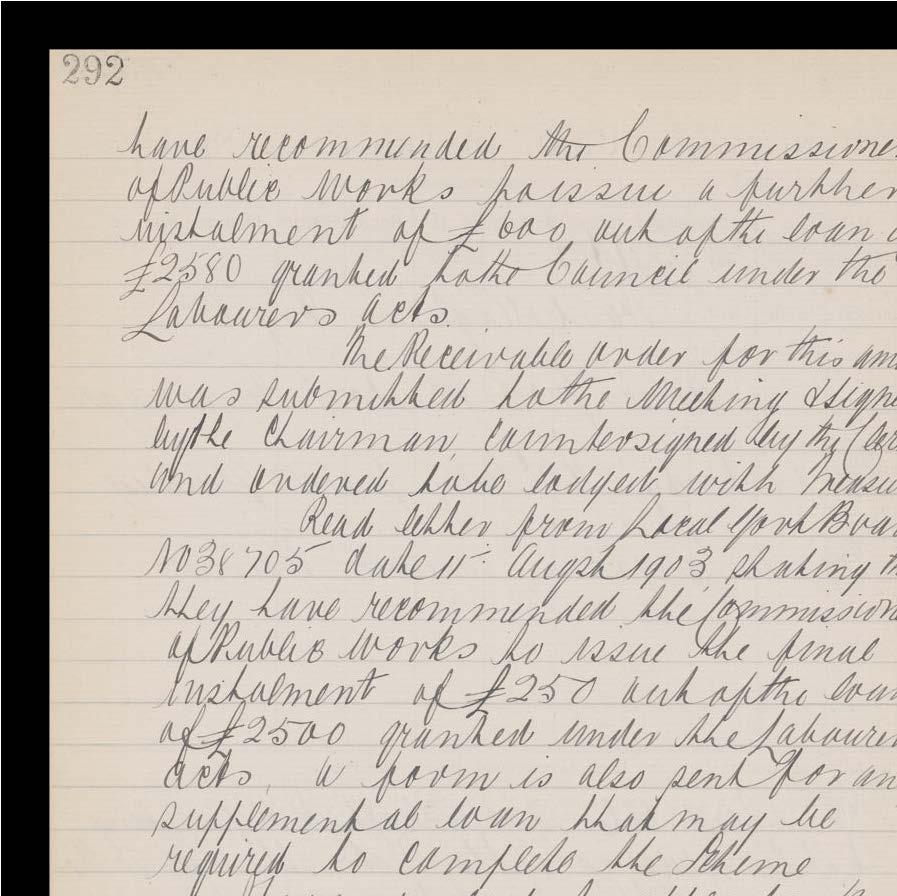 292
have recommended the Commissione
of Public Works to issue a further
instalment of £600 out of the loan o
£2580 granted to the Council under the
Labourers acts.
The Receivable order for this am
was submitted to the Meeting & signe
by the Chairman, Countersigned by the Cler
and ordered to be lodged with Treasu
Read letter from Local Govt Boar
No 38705 date 11th August 1903 stating th
they have recommended the Commission
of Public Works to issue the final
instalment of £250 out of the loan
of £2500 granted under the Labourer
acts, a form is also sent for an
supplemental loan that may be
required to complete the Scheme